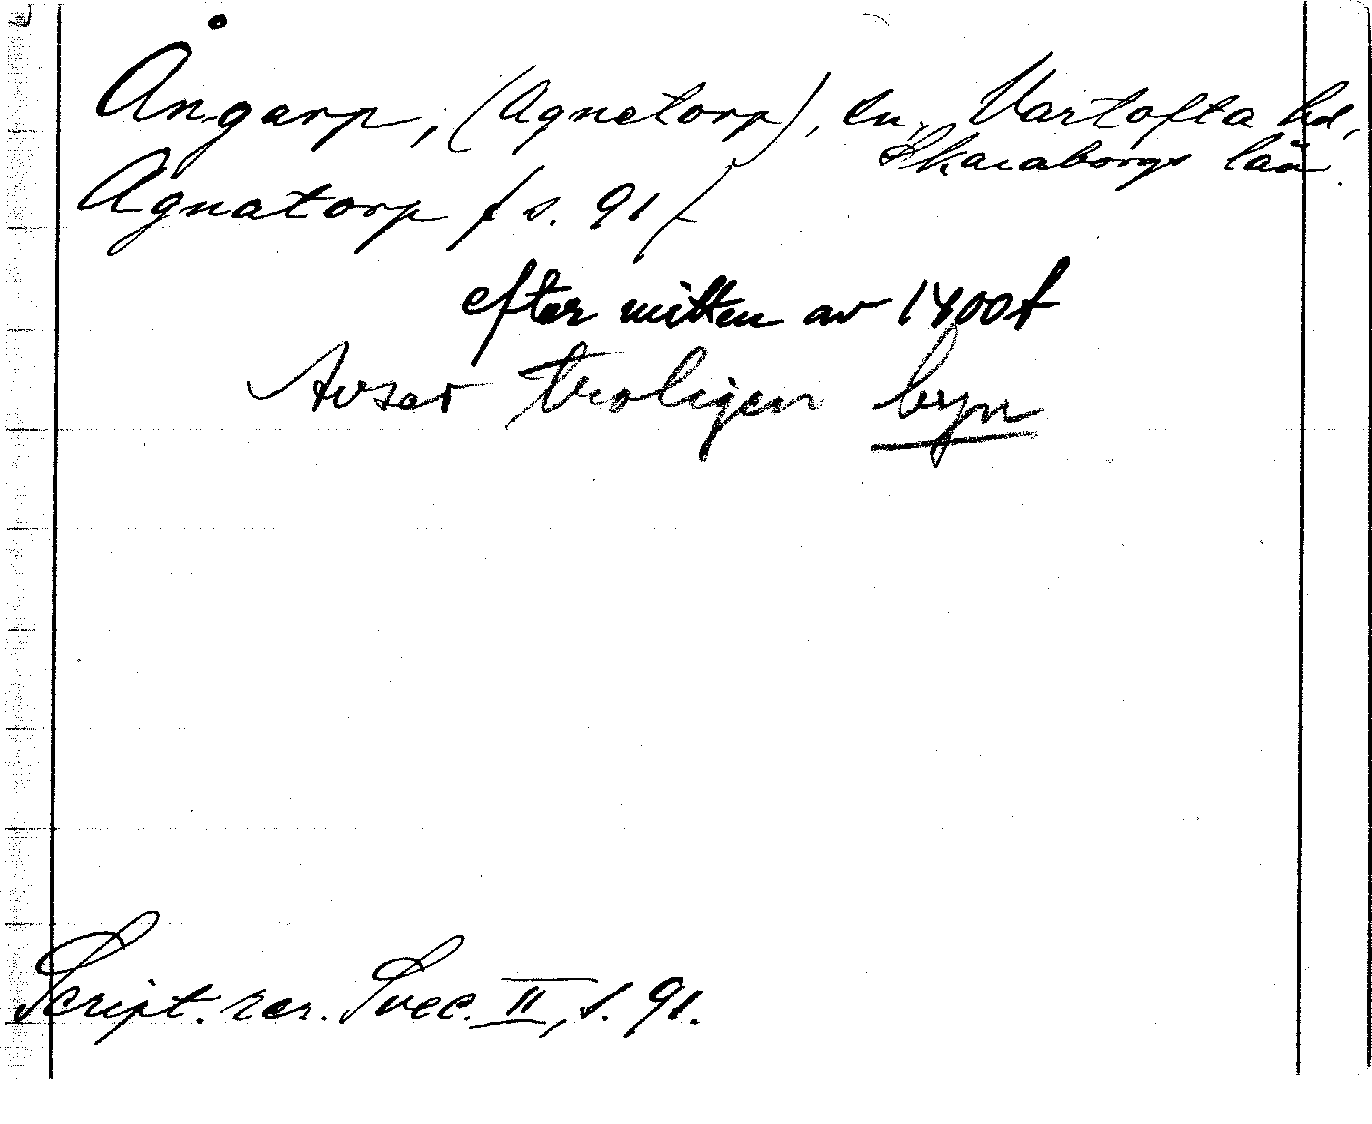 Ångarp, (Agnetorp), sn, Vartofta hd,
Skaraborgs län.
Agnatorp / s. 91 /
efter mitten av 1400t
Avser troligen byn
Script. rer. Svec. II, s. 91.